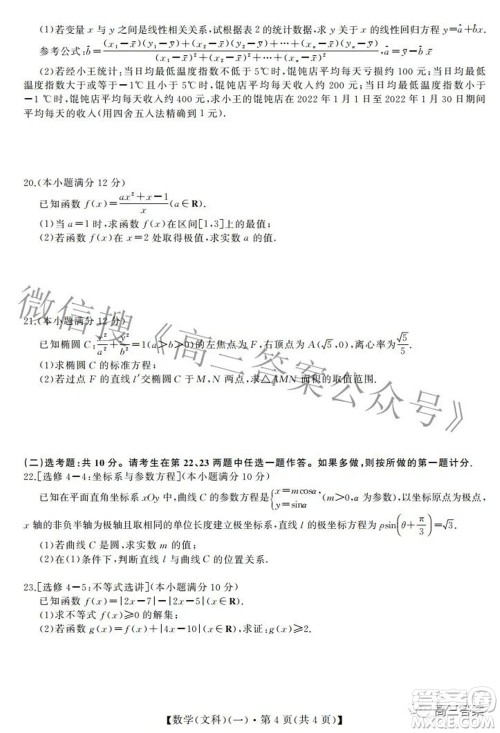 (1)若变量 x 与 y 之间是线性相关关系,试根据表 2 的统计数据,求 y 关于 x 的线性回归方程 ŷ=â+b̂x.
参考公式:b̂=((x₁-x̄)(y₁-ȳ)+(x₂-x̄)(y₂-ȳ)+…+(xₙ-x̄)(yₙ-ȳ))/((x₁-x̄)²+(x₂-x̄)²+…+(xₙ-x̄)²),â=ȳ-b̂x̄
(2)若经小王统计:当日均最低温度指数不低于 5℃时,馄饨店平均每天亏损约 100 元;当日均最低温度指数大于或等于-1℃且小于 5℃时,馄饨店平均每天收入约 200 元;当日均最低温度指数小于
-1℃时,馄饨店平均每天收入约 400 元,求小王的馄饨店在 2022 年 1 月 1 日至 2022 年 1 月 30 日期间平均每天的收入(用四舍五入法精确到 1).
20.(本小题满分 12 分)
已知函数 f(x)=(ax²+x-1)/x (a∈R).
(1)当 a=1 时,求函数 f(x)在区间[1,3]上的最值;
(2)若函数 f(x)在 x=2 处取得极值,求实数 a 的值.
21.(本小题满分 12 分)
已知椭圆 C:x²/a²+y²/b²=1(a>b>0)的左焦点为 F,右顶点为 A(√5,0),离心率为√5/5.
(1)求椭圆 C 的标准方程;
(2)若过点 F 的直线 l′交椭圆 C 于 M,N 两点,求△AMN 面积的取值范围.
(二)选考题:共 10 分。请考生在第 22、23 两题中任选一题作答。如果多做,则按所做的第一题计分.
22.[选修 4-4:坐标系与参数方程](本小题满分 10 分)
已知在平面直角坐标系 xOy 中,曲线 C 的参数方程为{x=mcosα, y=sinα (m>0,α为参数),以坐标原点为极点,
x 轴的非负半轴为极轴且取相同的单位长度建立极坐标系,直线 l 的极坐标方程为 ρsin(θ+π/3)=√3.
(1)若曲线 C 是圆,求 m 的值;
(2)在(1)的条件下,判断直线 l 与曲线 C 的位置关系.
23.[选修 4-5:不等式选讲](本小题满分 10 分)
已知函数 f(x)=|2x-7|-|2x-3|,x∈R.
(1)求不等式 f(x)≥0的解集;
(2)若函数 g(x)=f(x)+|4x-10|,求证:g(x)≥-4.
【数学(文科)(一)·第 4 页(共 4 页)】
微信搜《高三答案公众号》
高三答案